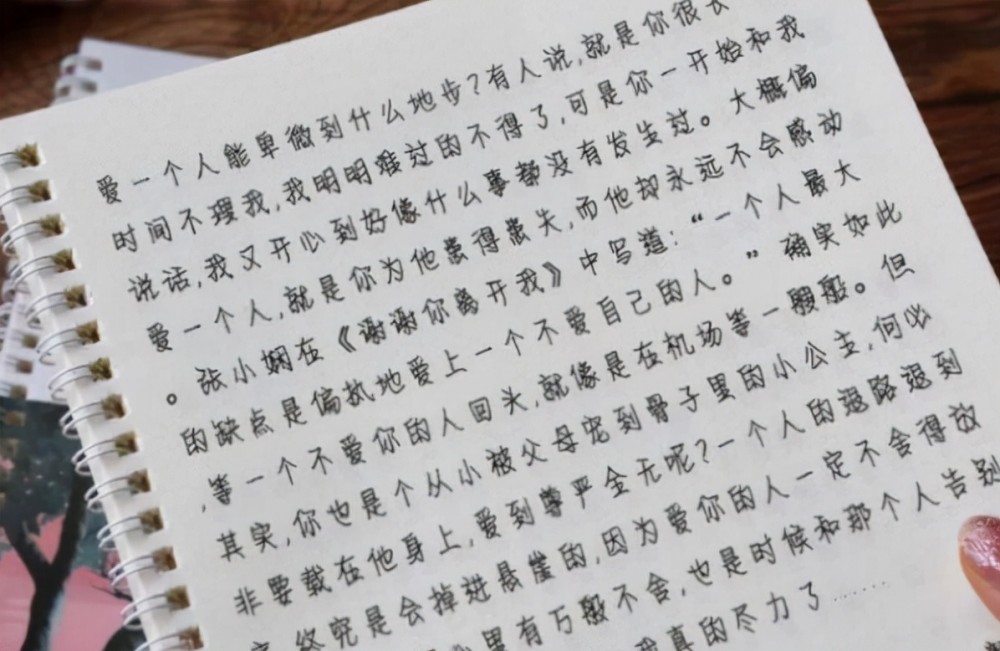 爱一个人能卑微到什么地步?有人说,就是你很长
时间不理我,我明明难过的不得了,可是你一开始和我
说话,我又开心到好像什么事都没有发生过。大概偏
爱一个人,就是你为他患得患失,而他却永远不会感动
。张小娴在《谢谢你离开我》中写道:“一个人最大
的缺点是偏执地爱上一个不爱自己的人。”确实如此
,等一个不爱你的人回头,就像是在机场等一艘船。但
其实,你也是个从小被父母宠到骨子里的小公主,何必
非要栽在他身上,爱到尊严全无呢?一个人的退路退到
终究是会掉进悬崖的,因为爱你的人一定不舍得放
里有万般不舍,也是时候和那个人告别
真的尽力了……